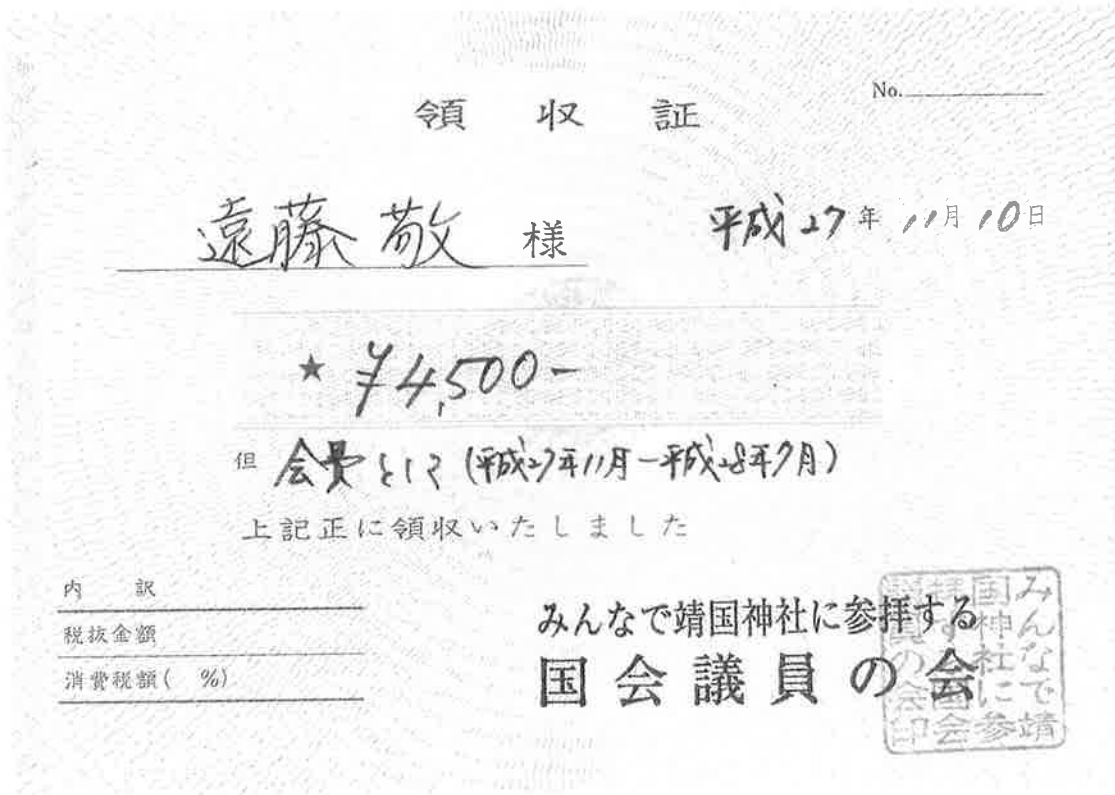 No.
領収証
遠藤敬 様
平成27年11月10日
★ ¥4,500-
但 会費として(平成27年11月-平成28年7月)
上記正に領収いたしました
内訳
税抜金額
消費税額( %)
みんなで靖国神社に参拝する
国会議員の会
みんなで靖
国神社に参
拝する国会
議員の会印